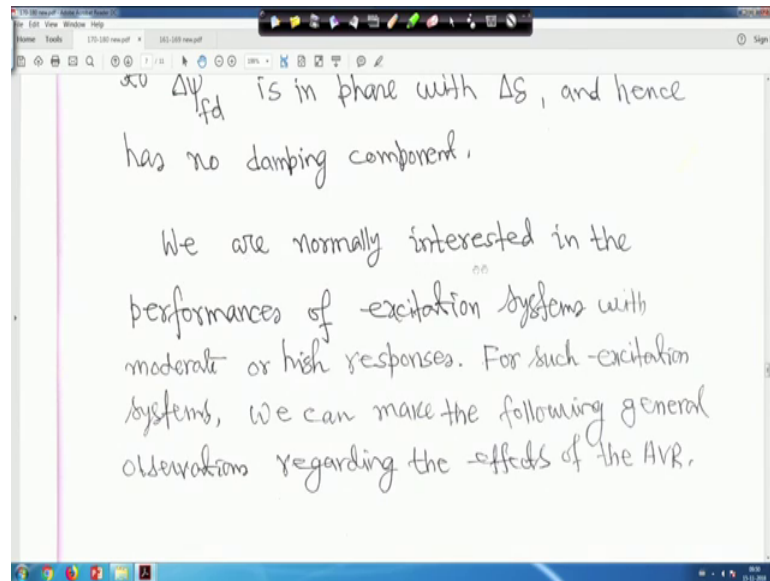 170-180 new.pdf - Adobe Acrobat Reader DC
File Edit View Window Help
Home Tools 170-180 new.pdf × 161-169 new.pdf Sign
7 / 11
Δψfd is in phase with Δδ, and hence
has no damping component.
We are normally interested in the
performances of excitation systems with
moderate or high responses. For such excitation
systems, we can make the following general
observations regarding the effects of the AVR.